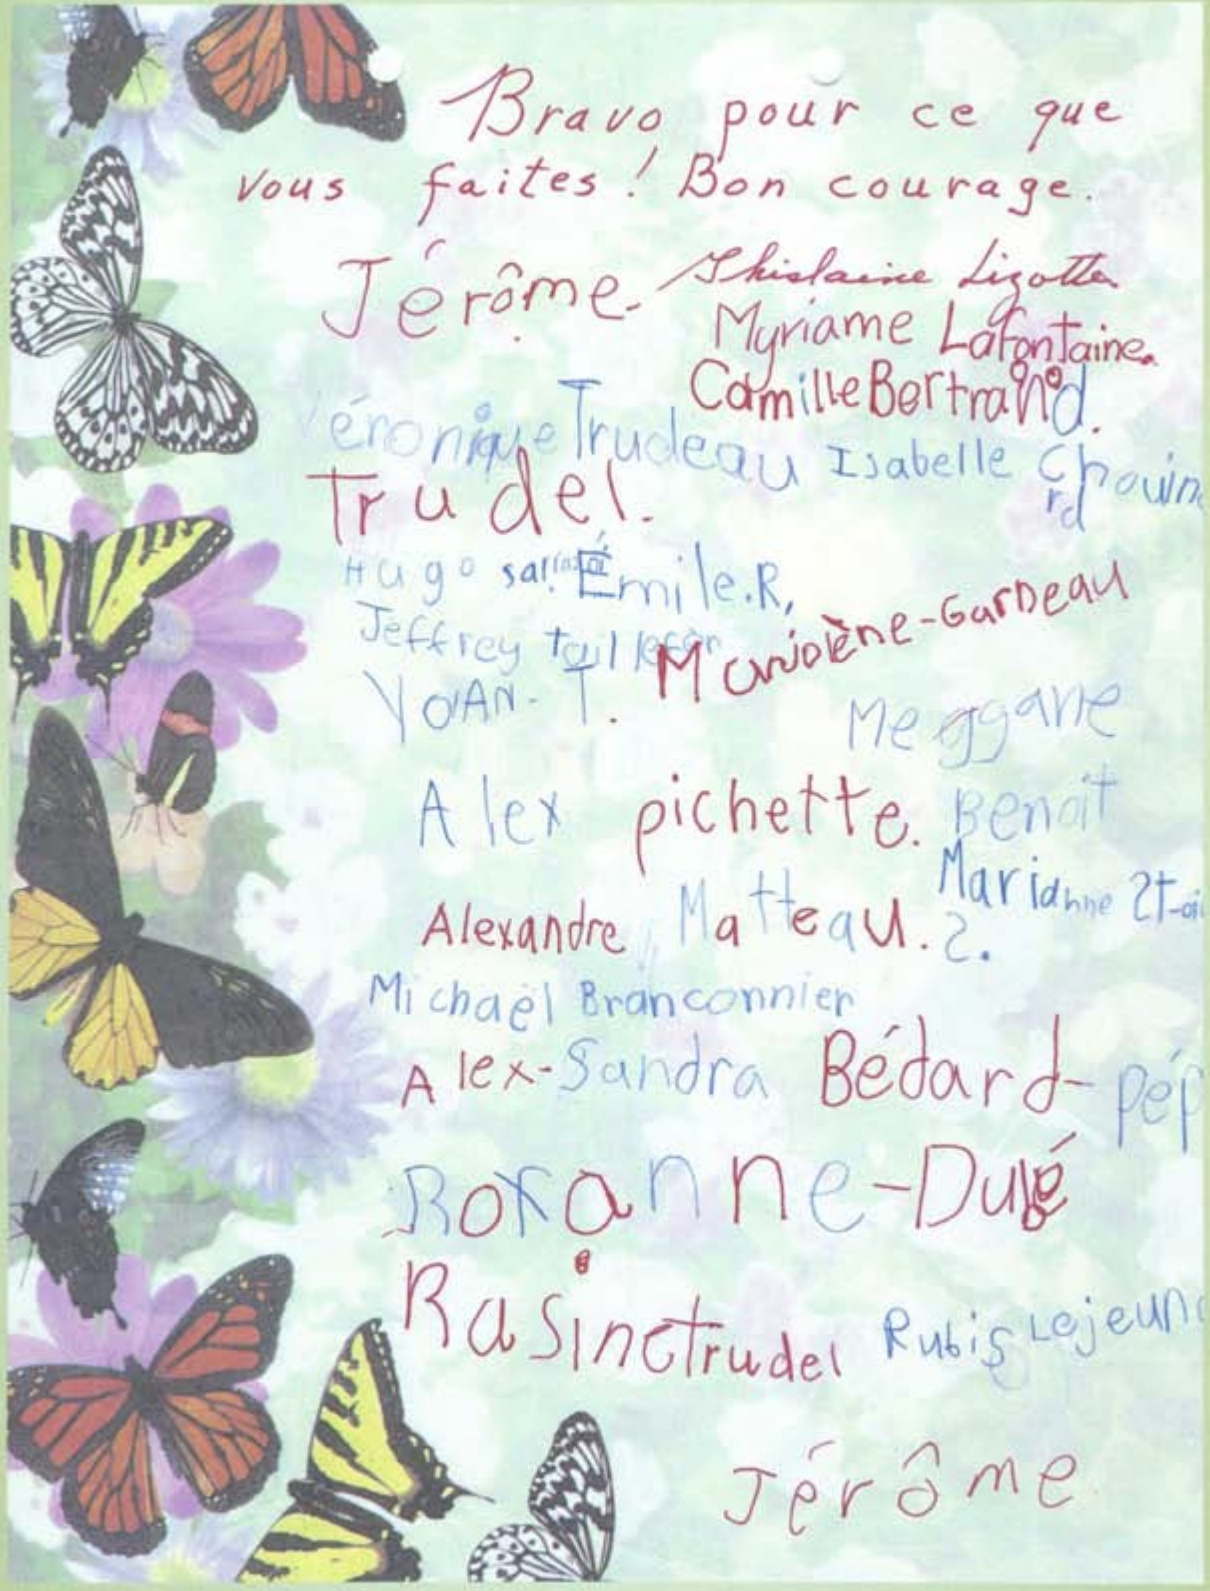 Bravo pour ce que
vous faites! Bon courage.
Jérôme. Ghislaine Lizotte
Myriame Lafontaine.
Camille Bertrand.
Véronique Trudeau Isabelle Chouina
rd
Trudel.
Hugo Émile.R,
Jeffrey
YOAN-T. Mariolène-Garneau
Meggane
Alex pichette. Benoit
Marianne
Alexandre Matteau. 2.
Michaël Branconnier
Alex-Sandra Bédard-pép
Roxanne-Dubé
Rasinetrudel Rubis Lejeune
Jérôme